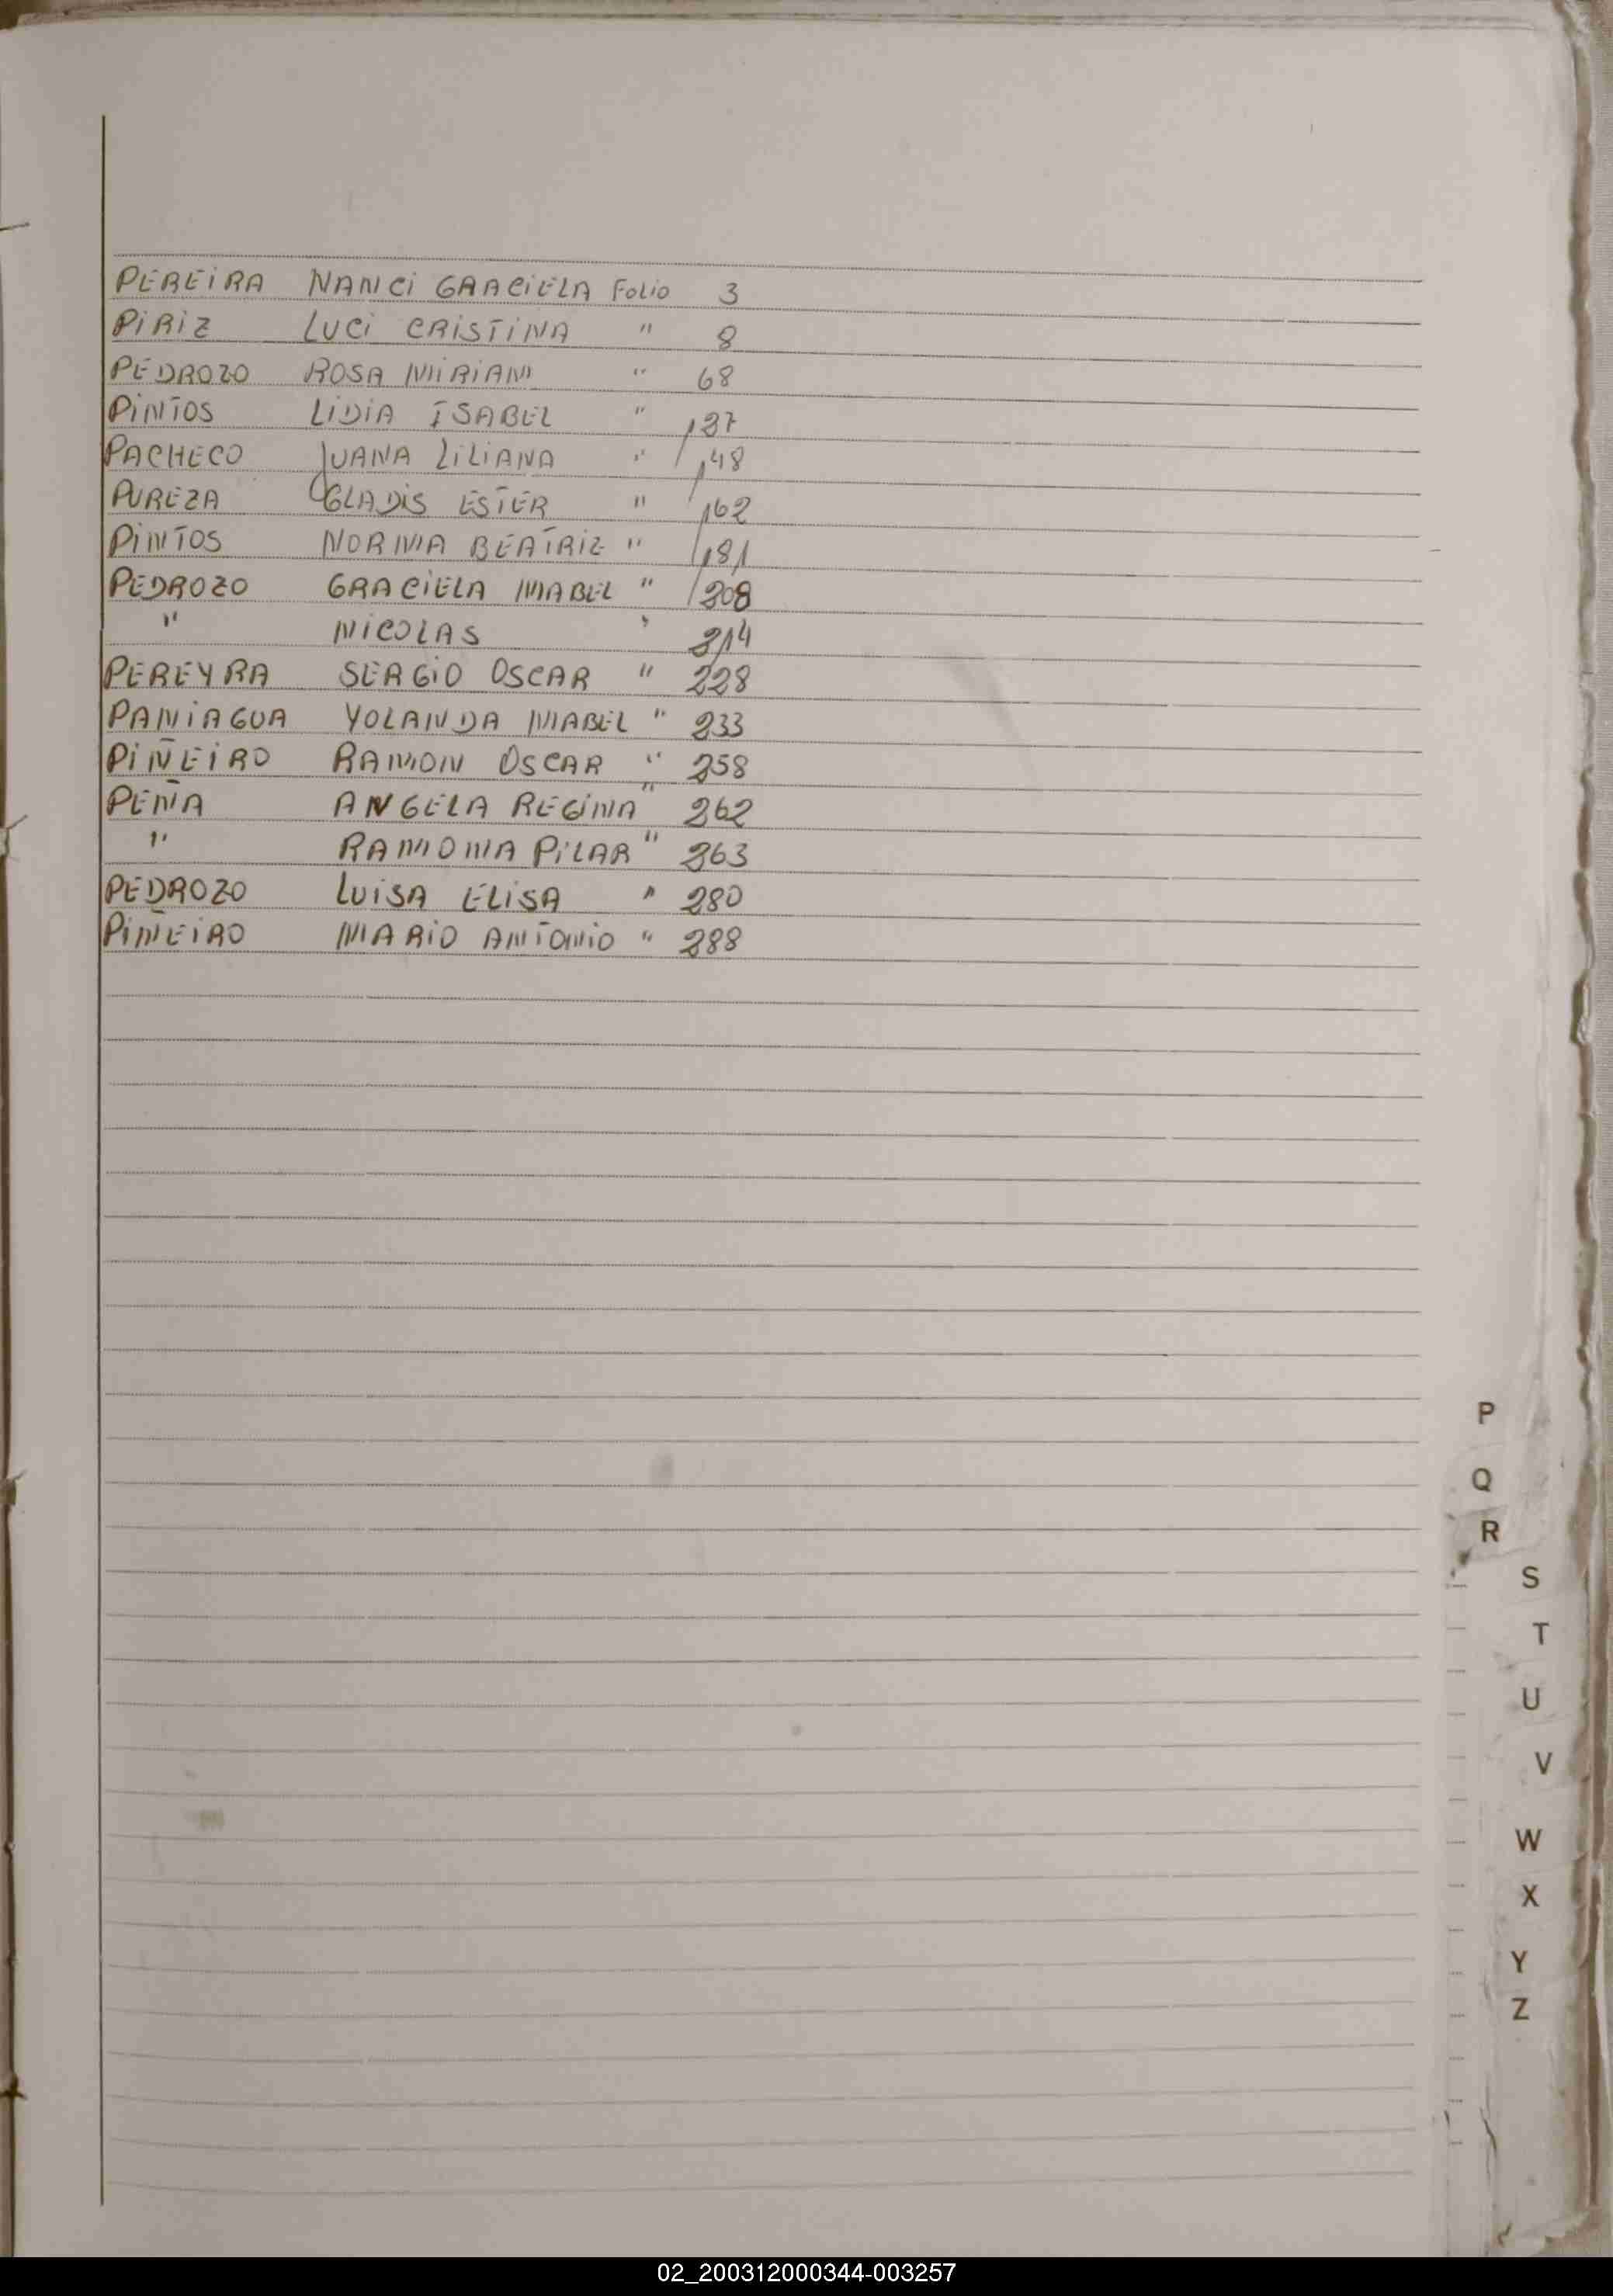 PEREIRA NANCI GRACIELA Folio 3
PIRIZ LUCI CRISTINA " 8
PEDROZO ROSA MIRIAM " 68
PINTOS LIDIA ISABEL " 137
PACHECO JUANA LILIANA " 148
PUREZA GLADIS ESTER " 162
PINTOS NORMA BEATRIZ " 181
PEDROZO GRACIELA MABEL " 208
" NICOLAS " 214
PEREYRA SERGIO OSCAR " 228
PANIAGUA YOLANDA MABEL " 233
PIÑEIRO RAMON OSCAR " 258
PEÑA ANGELA REGINA " 262
" RAMONA PILAR " 263
PEDROZO LUISA ELISA " 280
PIÑEIRO MARIO ANTONIO " 288
P
Q
R
S
T
U
V
W
X
Y
Z
02_200312000344-003257